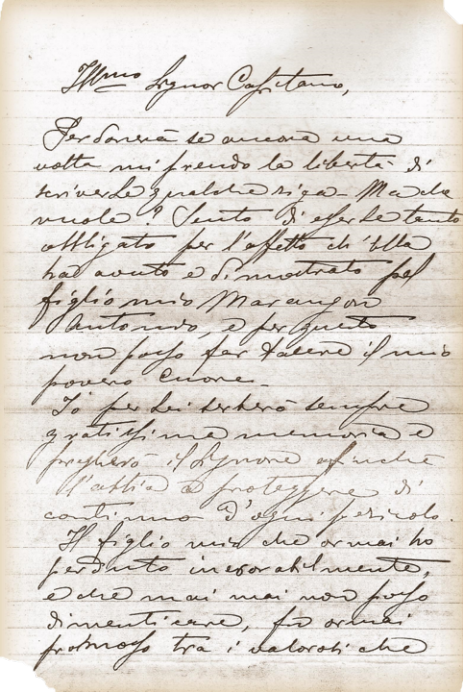 Illmo Signor Capitano,
Perdonerà se ancora una
volta mi prendo la libertà di
scriverLe qualche riga - Ma che
vuole? Sento di esserLe tanto
obbligato per l'affetto ch'Ella
ha avuto e dimostrato pel
figlio mio Marangon
Antonio, e per questo
non posso far tacere il mio
povero cuore -
Io per Lei serberò sempre
gratissima memoria e
pregherò il Signore affinche
l'abbia a proteggere di
continuo d'ogni pericolo.
Il figlio mio che ormai ho
perduto inesorabilmente,
e che mai mai non posso
dimenticare, fu ormai
promosso tra i valorosi che